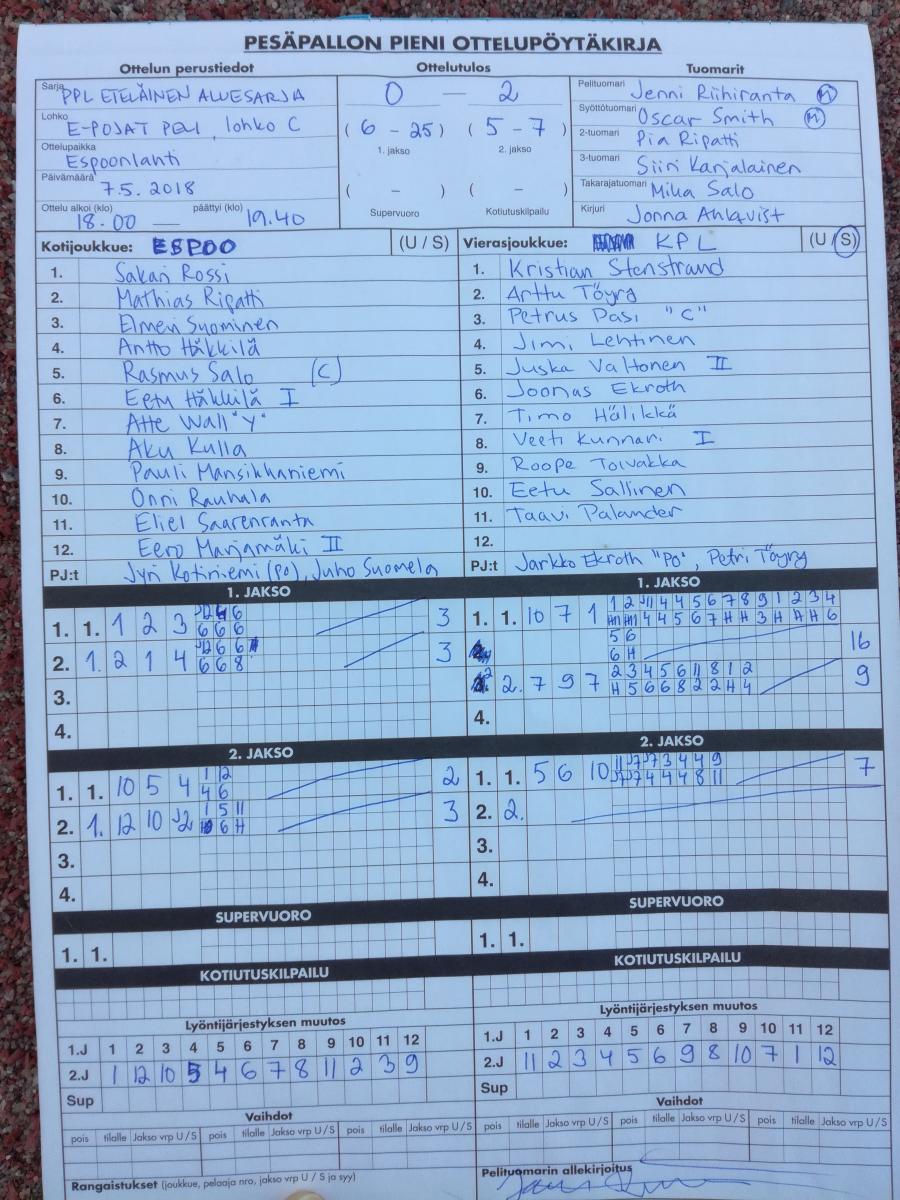 PESÄPALLON PIENI OTTELUPÖYTÄKIRJA
Ottelun perustiedot
Sarja PPL ETELÄINEN ALUESARJA
Lohko E-POJAT PELI, lohko C
Ottelupaikka Espoonlahti
Päivämäärä 7.5.2018
Ottelu alkoi (klo) 18.00 — päättyi (klo) 19.40
Ottelutulos
0 — 2
(6 - 25) (5 - 7)
1. jakso 2. jakso
( - ) ( - )
Supervuoro Kotiutuskilpailu
Tuomarit
Pelituomari Jenni Riihiranta
Syöttötuomari Oscar Smith
2-tuomari Pia Ripatti
3-tuomari Siiri Karjalainen
Takarajatuomari Mika Salo
Kirjuri Jonna Ahlqvist
Kotijoukkue: ESPOO (U / S)
1. Sakari Rossi
2. Mathias Ripatti
3. Elmeri Suominen
4. Antto Häkkilä
5. Rasmus Salo (C)
6. Eetu Häkkilä I
7. Atte Wall "Y"
8. Aku Kulla
9. Pauli Mansikkaniemi
10. Onni Rauhala
11. Eliel Saarenranta
12. Eero Marjamäki II
PJ:t Jyri Kotiniemi (po), Juho Suomela
Vierasjoukkue: KPL (U / S)
1. Kristian Stenstrand
2. Arttu Töyrg
3. Petrus Pasi "C"
4. Jimi Lehtinen
5. Juska Valtonen II
6. Joonas Ekroth
7. Timo Hälikkä
8. Veeti Kunnari I
9. Roope Toivakka
10. Eetu Sallinen
11. Taavi Palander
12.
PJ:t Jarkko Ekroth "PO", Petri Töyrg
1. JAKSO
1. 1. 1 2 3 6 6 3
6 6 6
2. 1. 2 1 4 6 6 3
6 6 8
3.
4.
1. JAKSO
1. 1. 10 7 1 1 2 4 4 5 6 7 8 9 1 2 3 4
4 4 5 6 7 H H 3 H H H 6
5 6 16
6 H
2. 7 9 7 2 3 4 5 6 11 8 1 2 9
H 5 6 6 8 2 2 H 4
4.
2. JAKSO
1. 1. 10 5 4 1 12 2
4 6
2. 1. 12 10 1 5 11 3
6 H
3.
4.
2. JAKSO
1. 1. 5 6 10 11 3 4 4 9 7
4 4 4 8 11
2. 2.
3.
4.
SUPERVUORO
1. 1.
SUPERVUORO
1. 1.
KOTIUTUSKILPAILU
KOTIUTUSKILPAILU
Lyöntijärjestyksen muutos
1.J 1 2 3 4 5 6 7 8 9 10 11 12
2.J 1 12 10 5 4 6 7 8 11 2 3 9
Sup
Lyöntijärjestyksen muutos
1.J 1 2 3 4 5 6 7 8 9 10 11 12
2.J 11 2 3 4 5 6 9 8 10 7 1 12
Sup
Vaihdot
pois tilalle Jakso vrp U / S pois tilalle Jakso vrp U / S pois tilalle Jakso vrp U / S
Vaihdot
pois tilalle Jakso vrp U / S pois tilalle Jakso vrp U / S pois tilalle Jakso vrp U / S
Rangaistukset (joukkue, pelaaja nro, jakso vrp U / S ja syy)
Pelituomarin allekirjoitus